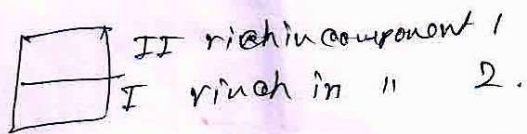 II rich in component 1
I rich in " 2.